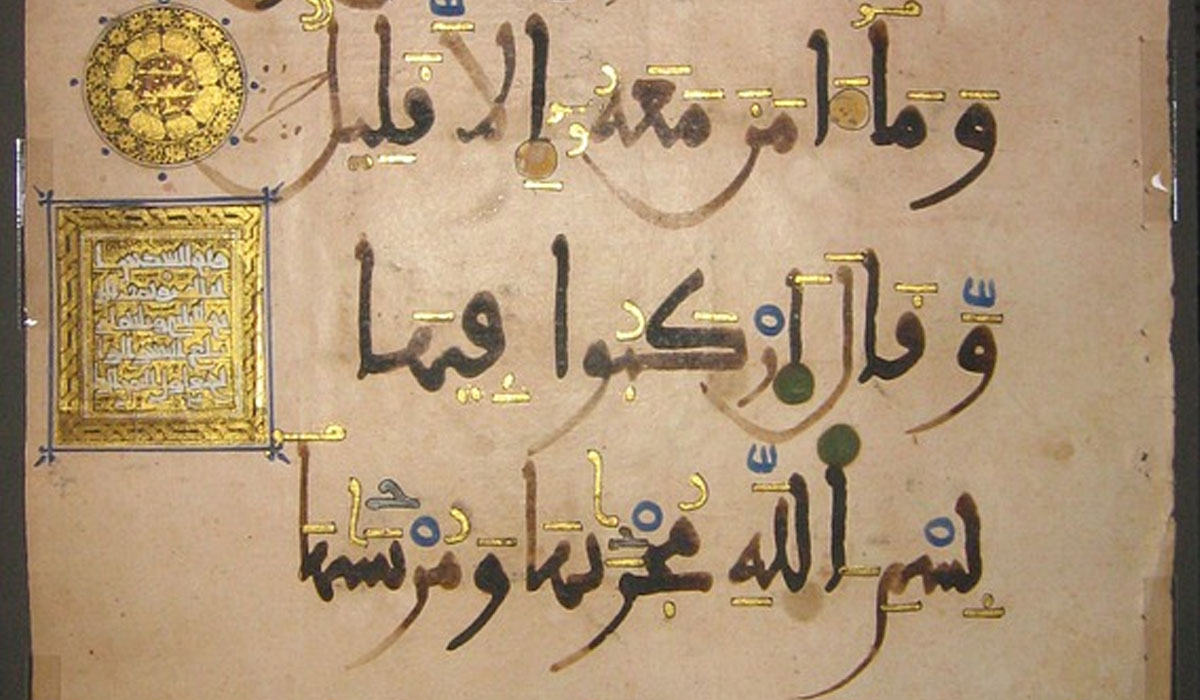 وَمَا ءَامَنَ مَعَهُۥ إِلَّا قَلِيلٌ
وَّقَالَ ارْكَبُوا فِيهَا
بِسْمِ اللَّهِ مُجْر۪ىٰهَا وَمُرْسَىٰهَا